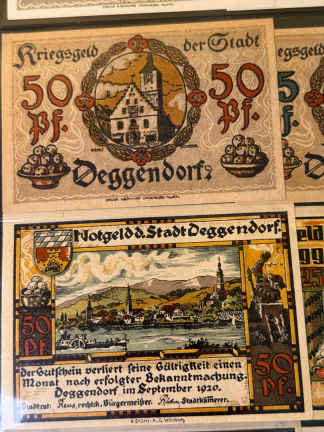 Kriegsgeld der Stadt
50 Pf.
50 Pf.
Deggendorf
Notgeld d. Stadt Deggendorf.
50 Pf.
50 Pf.
der Gutschein verliert seine Gültigkeit einen
Monat nach erfolgter Bekanntmachung.
Deggendorf im September 1920.
Stadtrat: Bürgermeister. Stadtkämmerer.